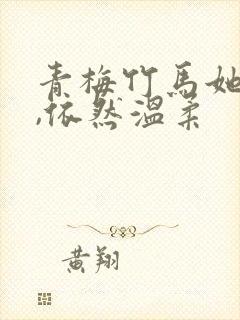 青梅竹马她
,依然温柔
黄翔